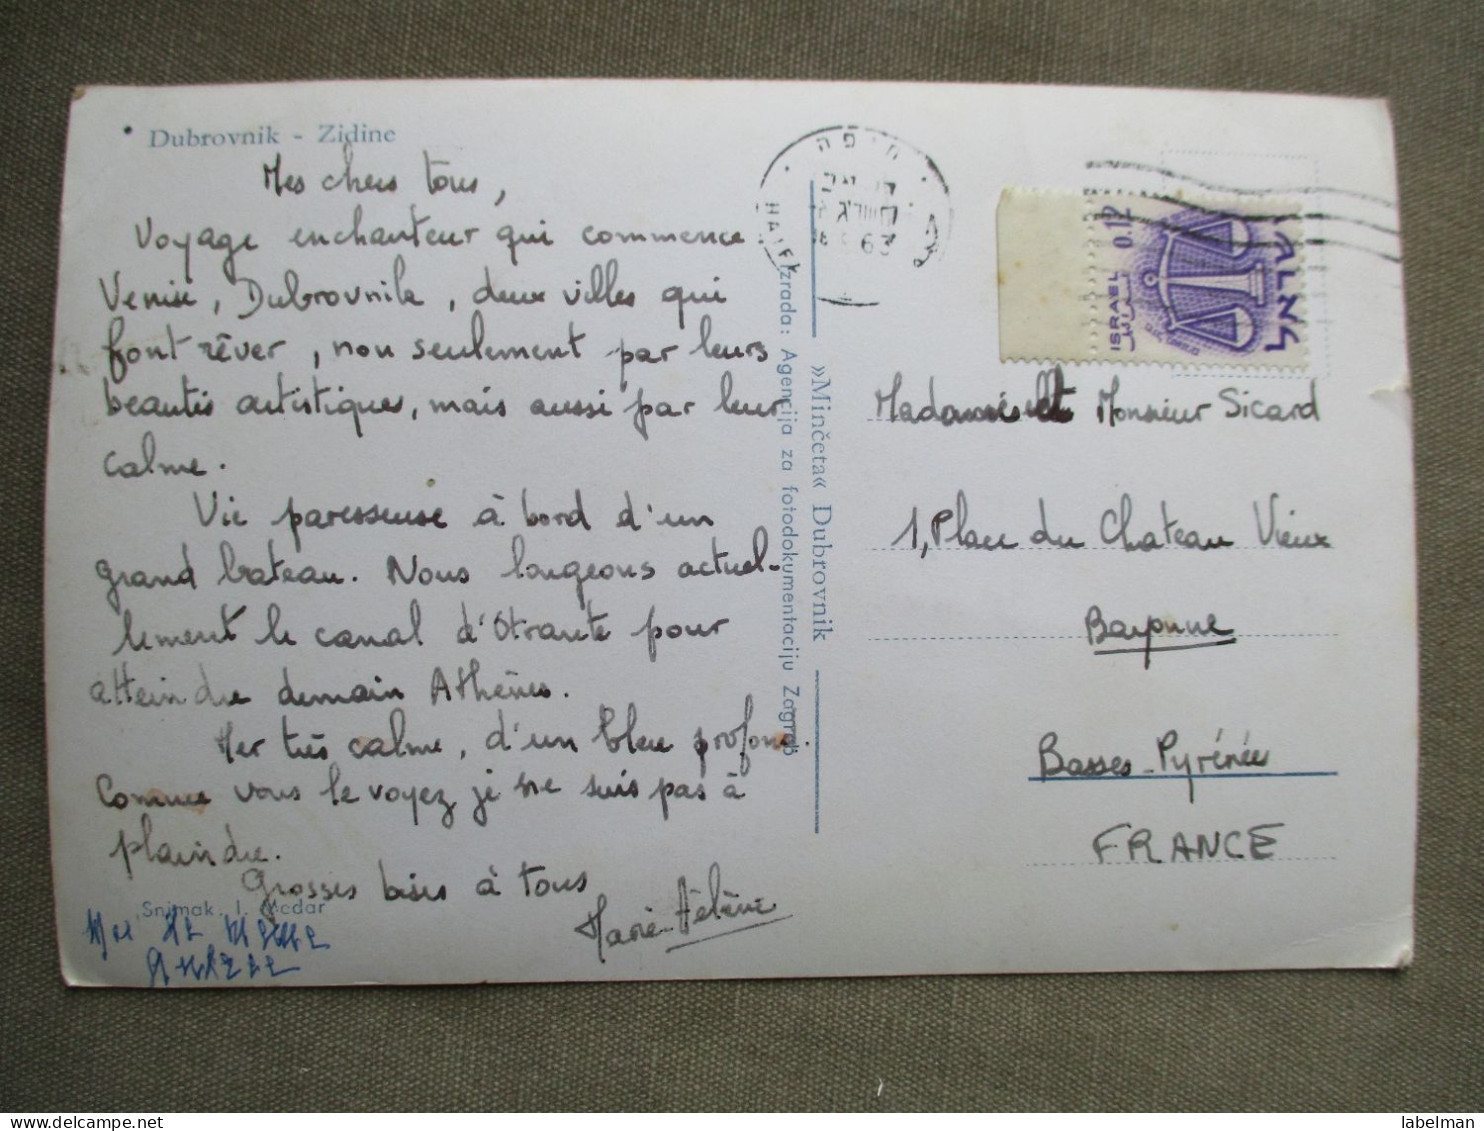 Dubrovnik - Zidine
Mes chers tous,
Voyage enchanteur qui commence.
Venise, Dubrovnik, deux villes qui
font rêver, non seulement par leurs
beautés artistiques, mais aussi par leur
calme.
Vie paresseuse à bord d'un
grand bateau. Nous longeons actuel-
lement le canal d'Otrante pour
atteindre demain Athènes.
Mer très calme, d'un bleu profond.
Comme vous le voyez je ne suis pas à
plaindre.
Grosses bises à tous
Marie-Hélène
Snimak I. Medar
»Minčeta« Dubrovnik
Izrada: Agencija za fotodokumentaciju Zagreb
חיפה
HAIFA
ISRAEL 0.12
اسرائيل
ישראל
Monsieur Sicard
1, Place du Chateau Vieux
Bayonne
Basses-Pyrénées
FRANCE
labelman
www.delcampe.net